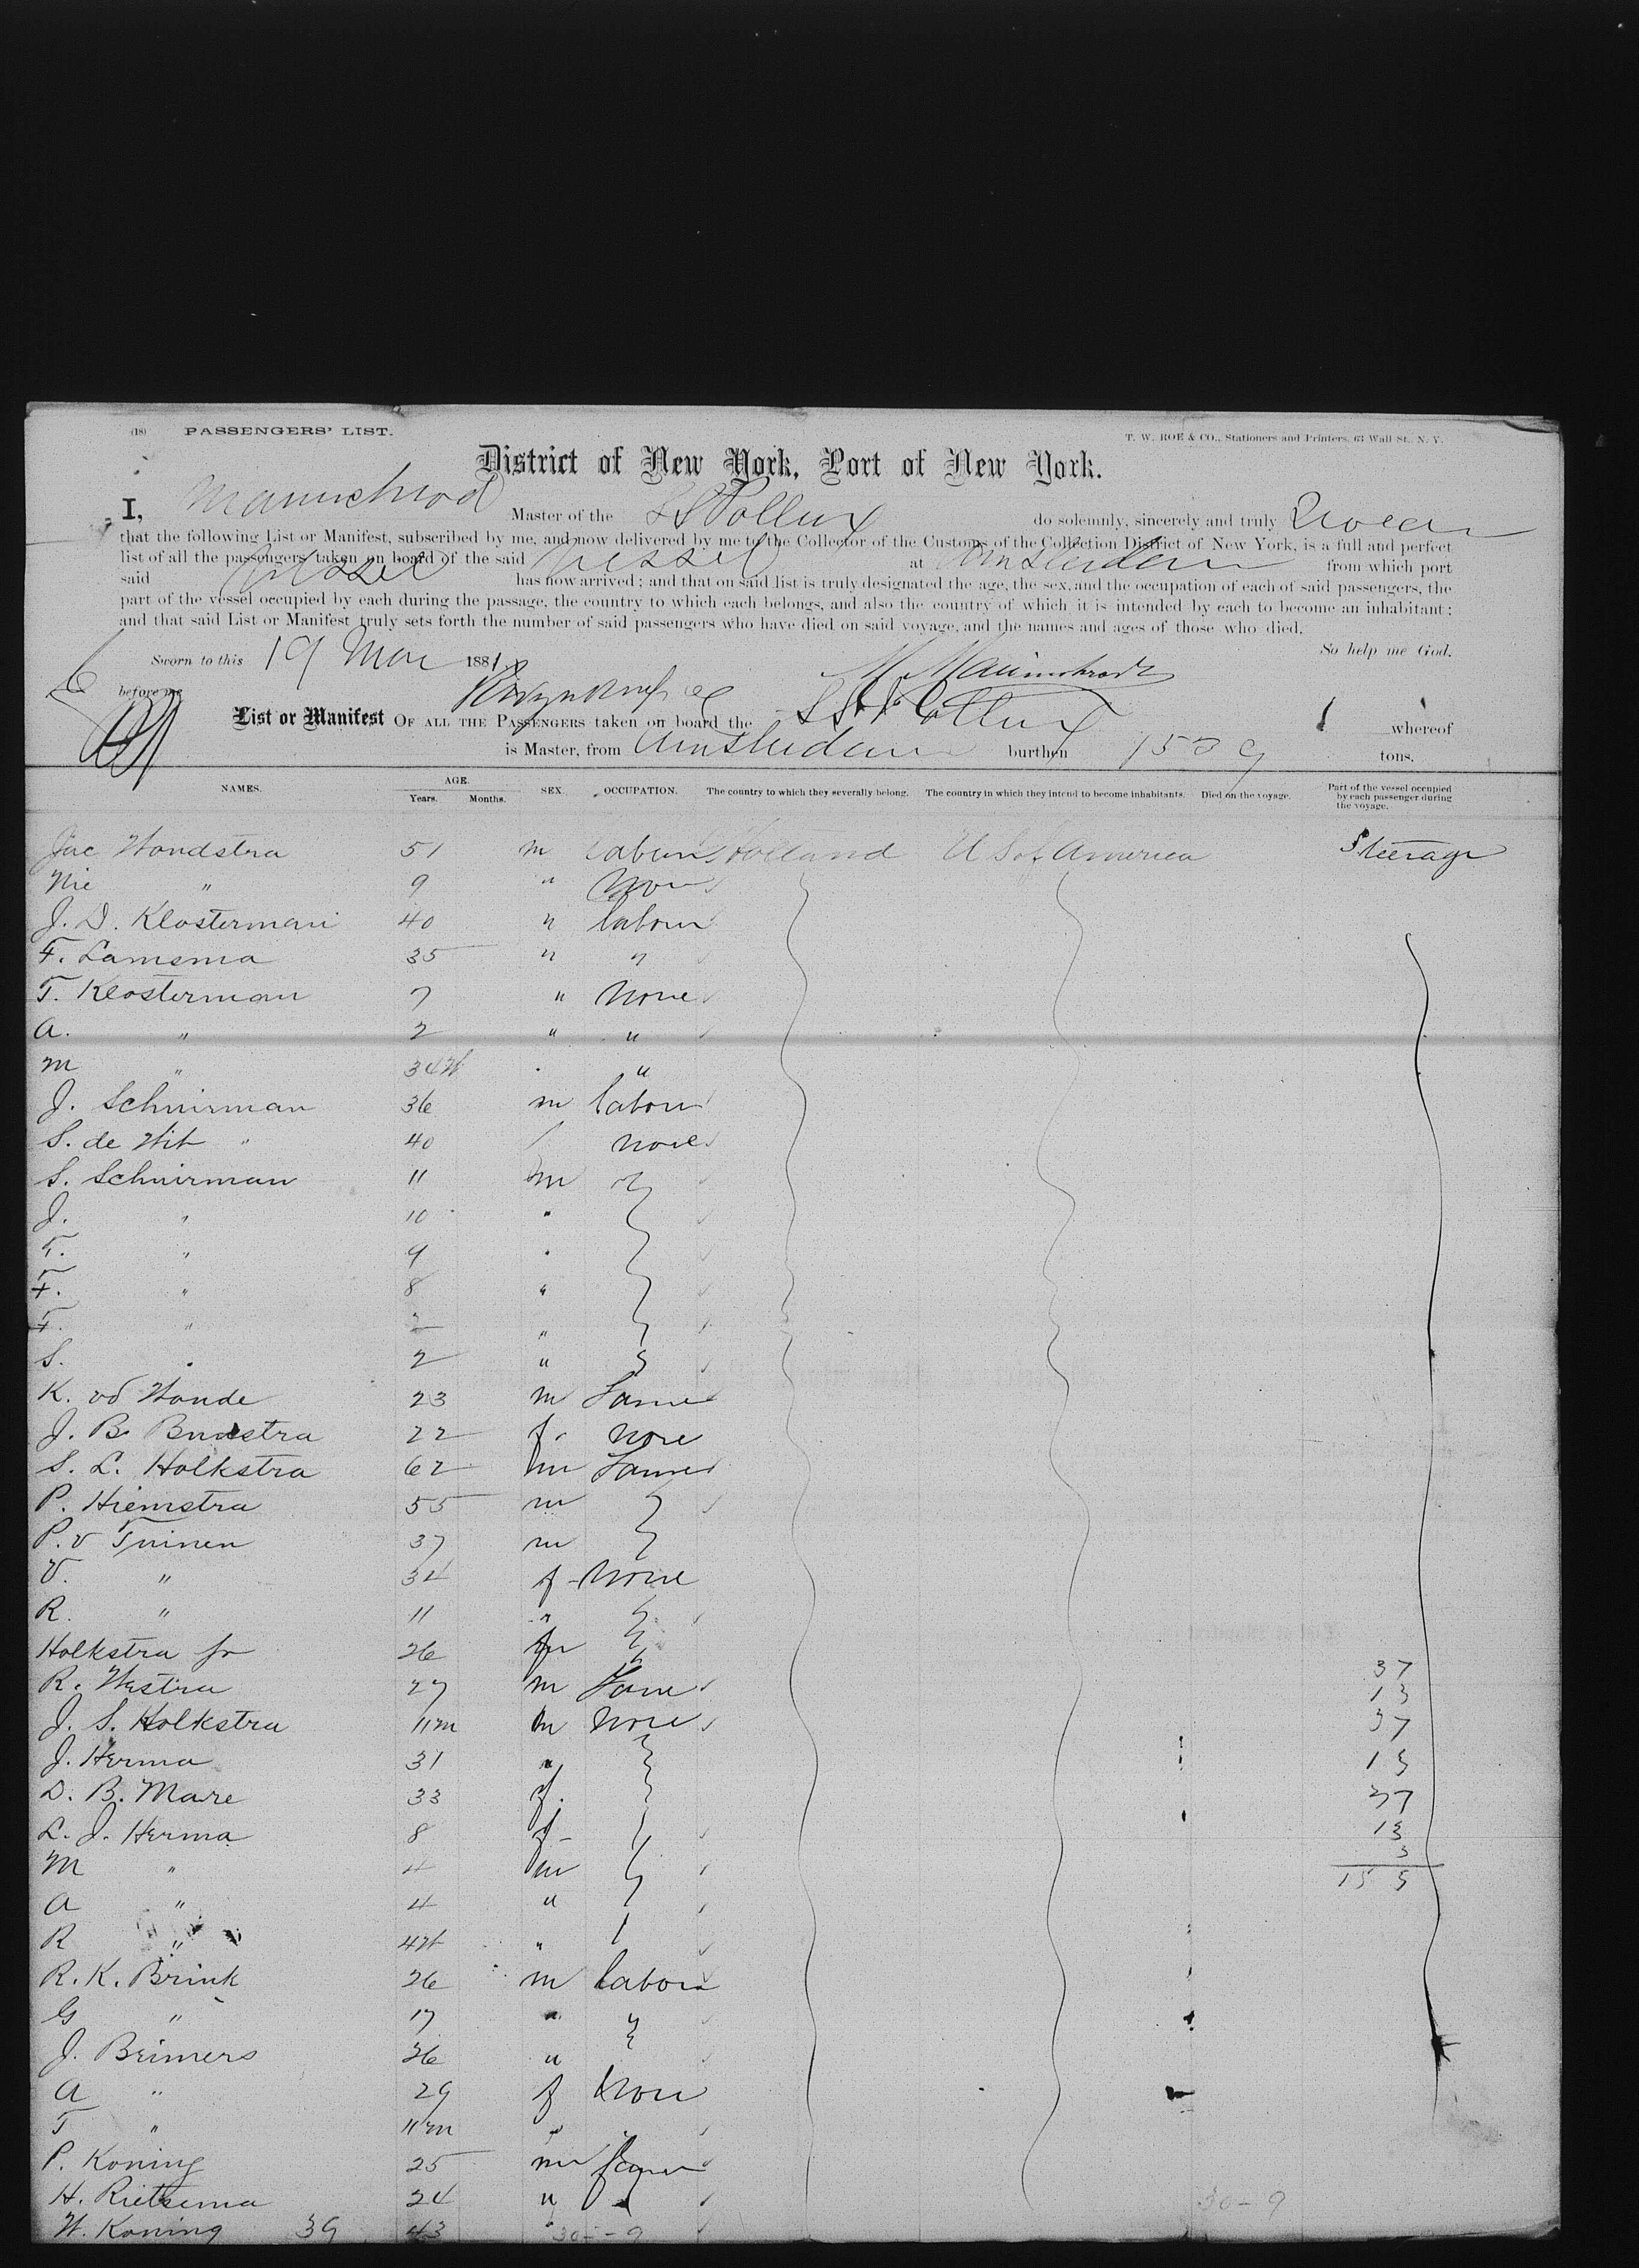 (18) PASSENGERS' LIST.
T. W. ROE & CO., Stationers and Printers, 63 Wall St., N. Y.
District of New York, Port of New York.
I, Master of the SS Pollux do solemnly, sincerely and truly Swear
that the following List or Manifest, subscribed by me, and now delivered by me to the Collector of the Customs of the Collection District of New York, is a full and perfect
list of all the passengers taken on board of the said Vessel at Amsterdam from which port
said Vessel has now arrived; and that on said list is truly designated the age, the sex, and the occupation of each of said passengers, the
part of the vessel occupied by each during the passage, the country to which each belongs, and also the country of which it is intended by each to become an inhabitant;
and that said List or Manifest truly sets forth the number of said passengers who have died on said voyage, and the names and ages of those who died.
So help me God.
Sworn to this 19 Mar 1881
before me
List or Manifest OF ALL THE PASSENGERS taken on board the SS Pollux whereof
is Master, from Amsterdam burthen 1539 tons.
NAMES. AGE. Years. Months. SEX. OCCUPATION. The country to which they severally belong. The country in which they intend to become inhabitants. Died on the voyage. Part of the vessel occupied by each passenger during the voyage.
Jac Hondstra 51 m labour Holland U S of America Steerage
Nie " 9 " None
J. D. Klosterman 40 " labour
F. Lamsma 35 " "
T. Klosterman 7 " None
A. " 2 " "
M " 34 "
J. Schuirman 36 m labour
S. de Wit " 40 / none
S. Schuirman 11 m
J. " 10 "
T. " 9 "
F. " 8 "
F. " 2 "
S. " 2 "
K. vd Wonde 23 m Farmer
J. B. 22 f. none
S. L. Holkstra 62 m Farmer
P. Hiemstra 55 m
P. v Tuinen 37 m
V. " 34 f - None
R. " 11 "
Holkstra jr 26 m
R. Westra 27 m Farmer 37
J. S. Holkstra 11m m None 37
J. Herma 31 " 13
D. B. Mare 33 f. 37
L. J. Herma 8 f - 13
M " 4 m 3
A " 4 " 155
R " "
R. K. Brink 26 m labour
G " 17 "
J. Beimers 26 "
A " 29 f None
T " 11m "
P. Koning 25 m farmer
H. Rietsema 24 " 30 - 9
W. Koning 39 43 " 30 - 9